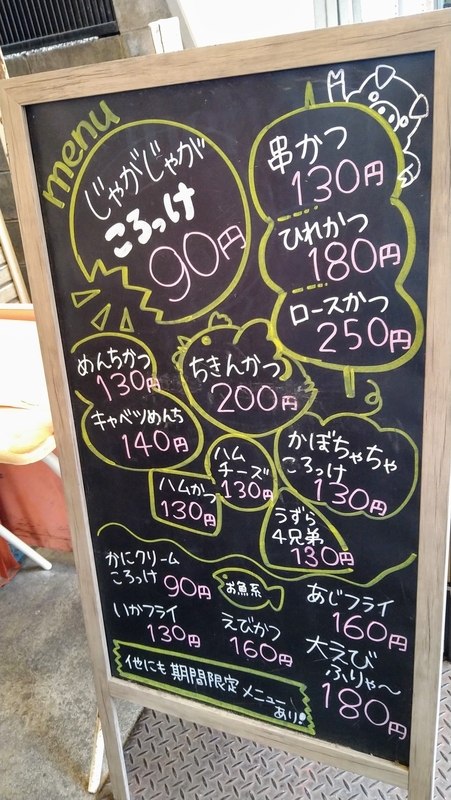 menu
じゃがじゃが
ころっけ
90円
串かつ
130円
ひれかつ
180円
ロースかつ
250円
めんちかつ
130円
キャベツめんち
140円
ちきんかつ
200円
ハムかつ
130円
ハム
チーズ
130円
かぼちゃちゃ
ころっけ
130円
うずら
4兄弟
130円
かにクリーム
ころっけ 90円
お魚系
あじフライ
160円
いかフライ
130円
えびかつ
160円
大えび
ふりゃ〜
180円
他にも期間限定メニュー
あり!